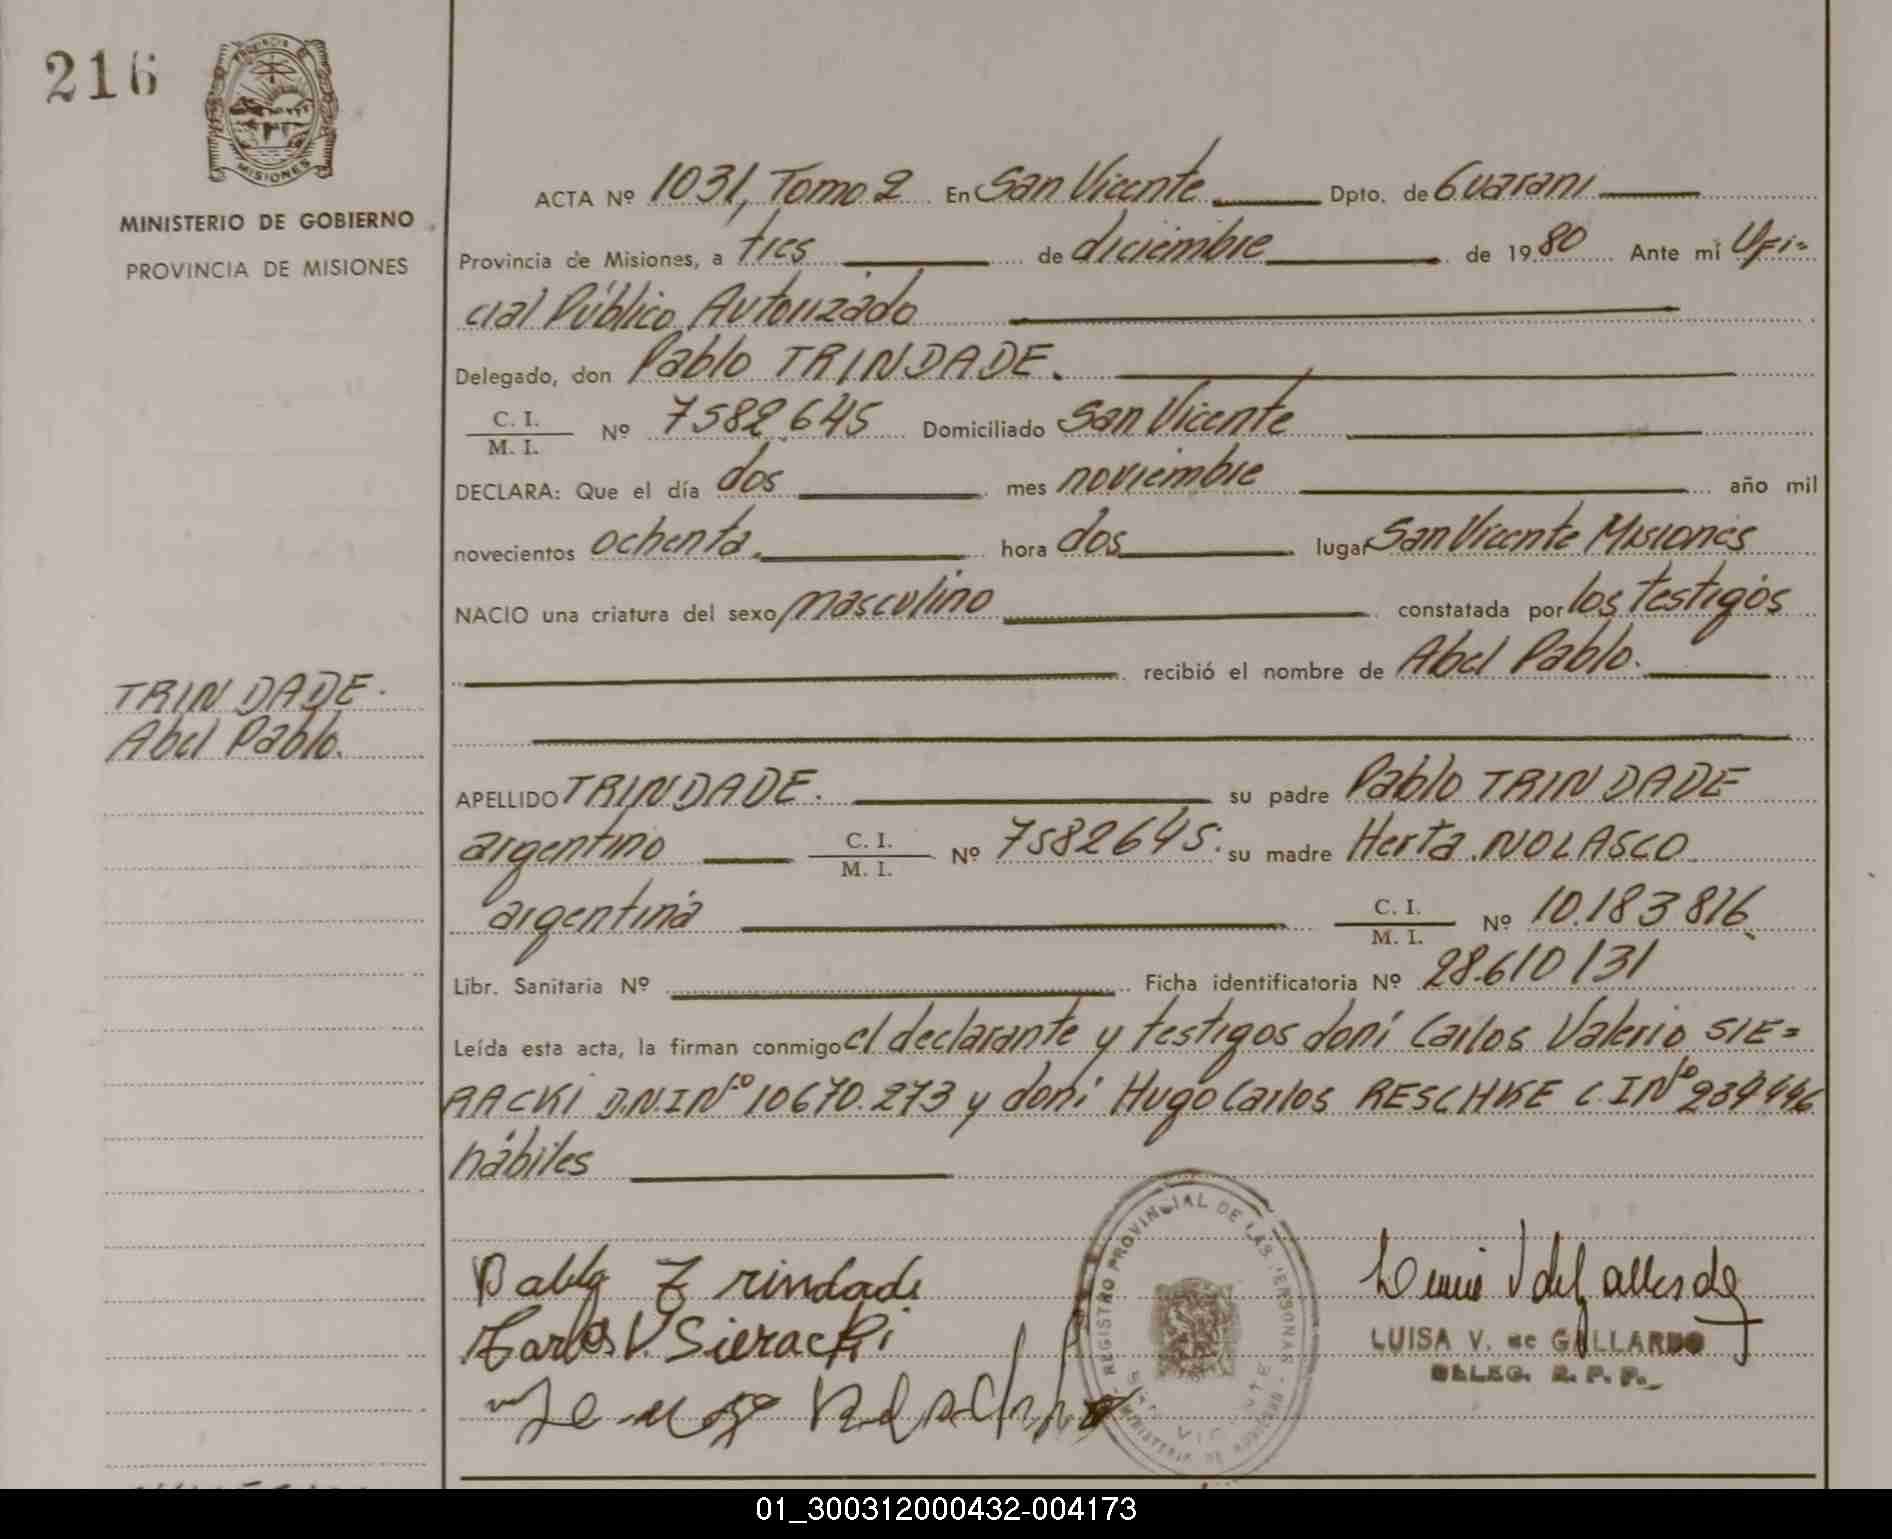 216
PROVINCIA DE
MISIONES
MINISTERIO DE GOBIERNO
PROVINCIA DE MISIONES
ACTA Nº 1031, Tomo 2 En San Vicente Dpto. de Guarani
Provincia de Misiones, a tres de diciembre de 1980 Ante mi Ofi=
cial Público Autorizado
Delegado, don Pablo TRINDADE.
C. I.
M. I. Nº 7582.645 Domiciliado San Vicente
DECLARA: Que el día dos mes noviembre año mil
novecientos ochenta. hora dos lugar San Vicente Misiones
NACIO una criatura del sexo masculino constatada por los testigos
recibió el nombre de Abel Pablo.
TRINDADE.
Abel Pablo.
APELLIDO TRINDADE. su padre Pablo TRINDADE
argentino C. I. M. I. Nº 7582645. su madre Herta NOLASCO
argentina C. I. M. I. Nº 10.183 816
Libr. Sanitaria Nº Ficha identificatoria Nº 28.610 131
Leída esta acta, la firman conmigo el declarante y testigos doni Carlos Valerio SIE=
RACKI D.N.I Nº 10670.273 y doni Hugo Carlos RESCHKE C.I Nº 239446
hábiles
Pablo Trindade
Carlos V. Sieracki
REGISTRO PROVINCIAL DE LAS PERSONAS
SAN VICENTE
MINISTERIO DE GOBIERNO
LUISA V. de GALLARDO
DELEG. R. P. P.
01_300312000432-004173